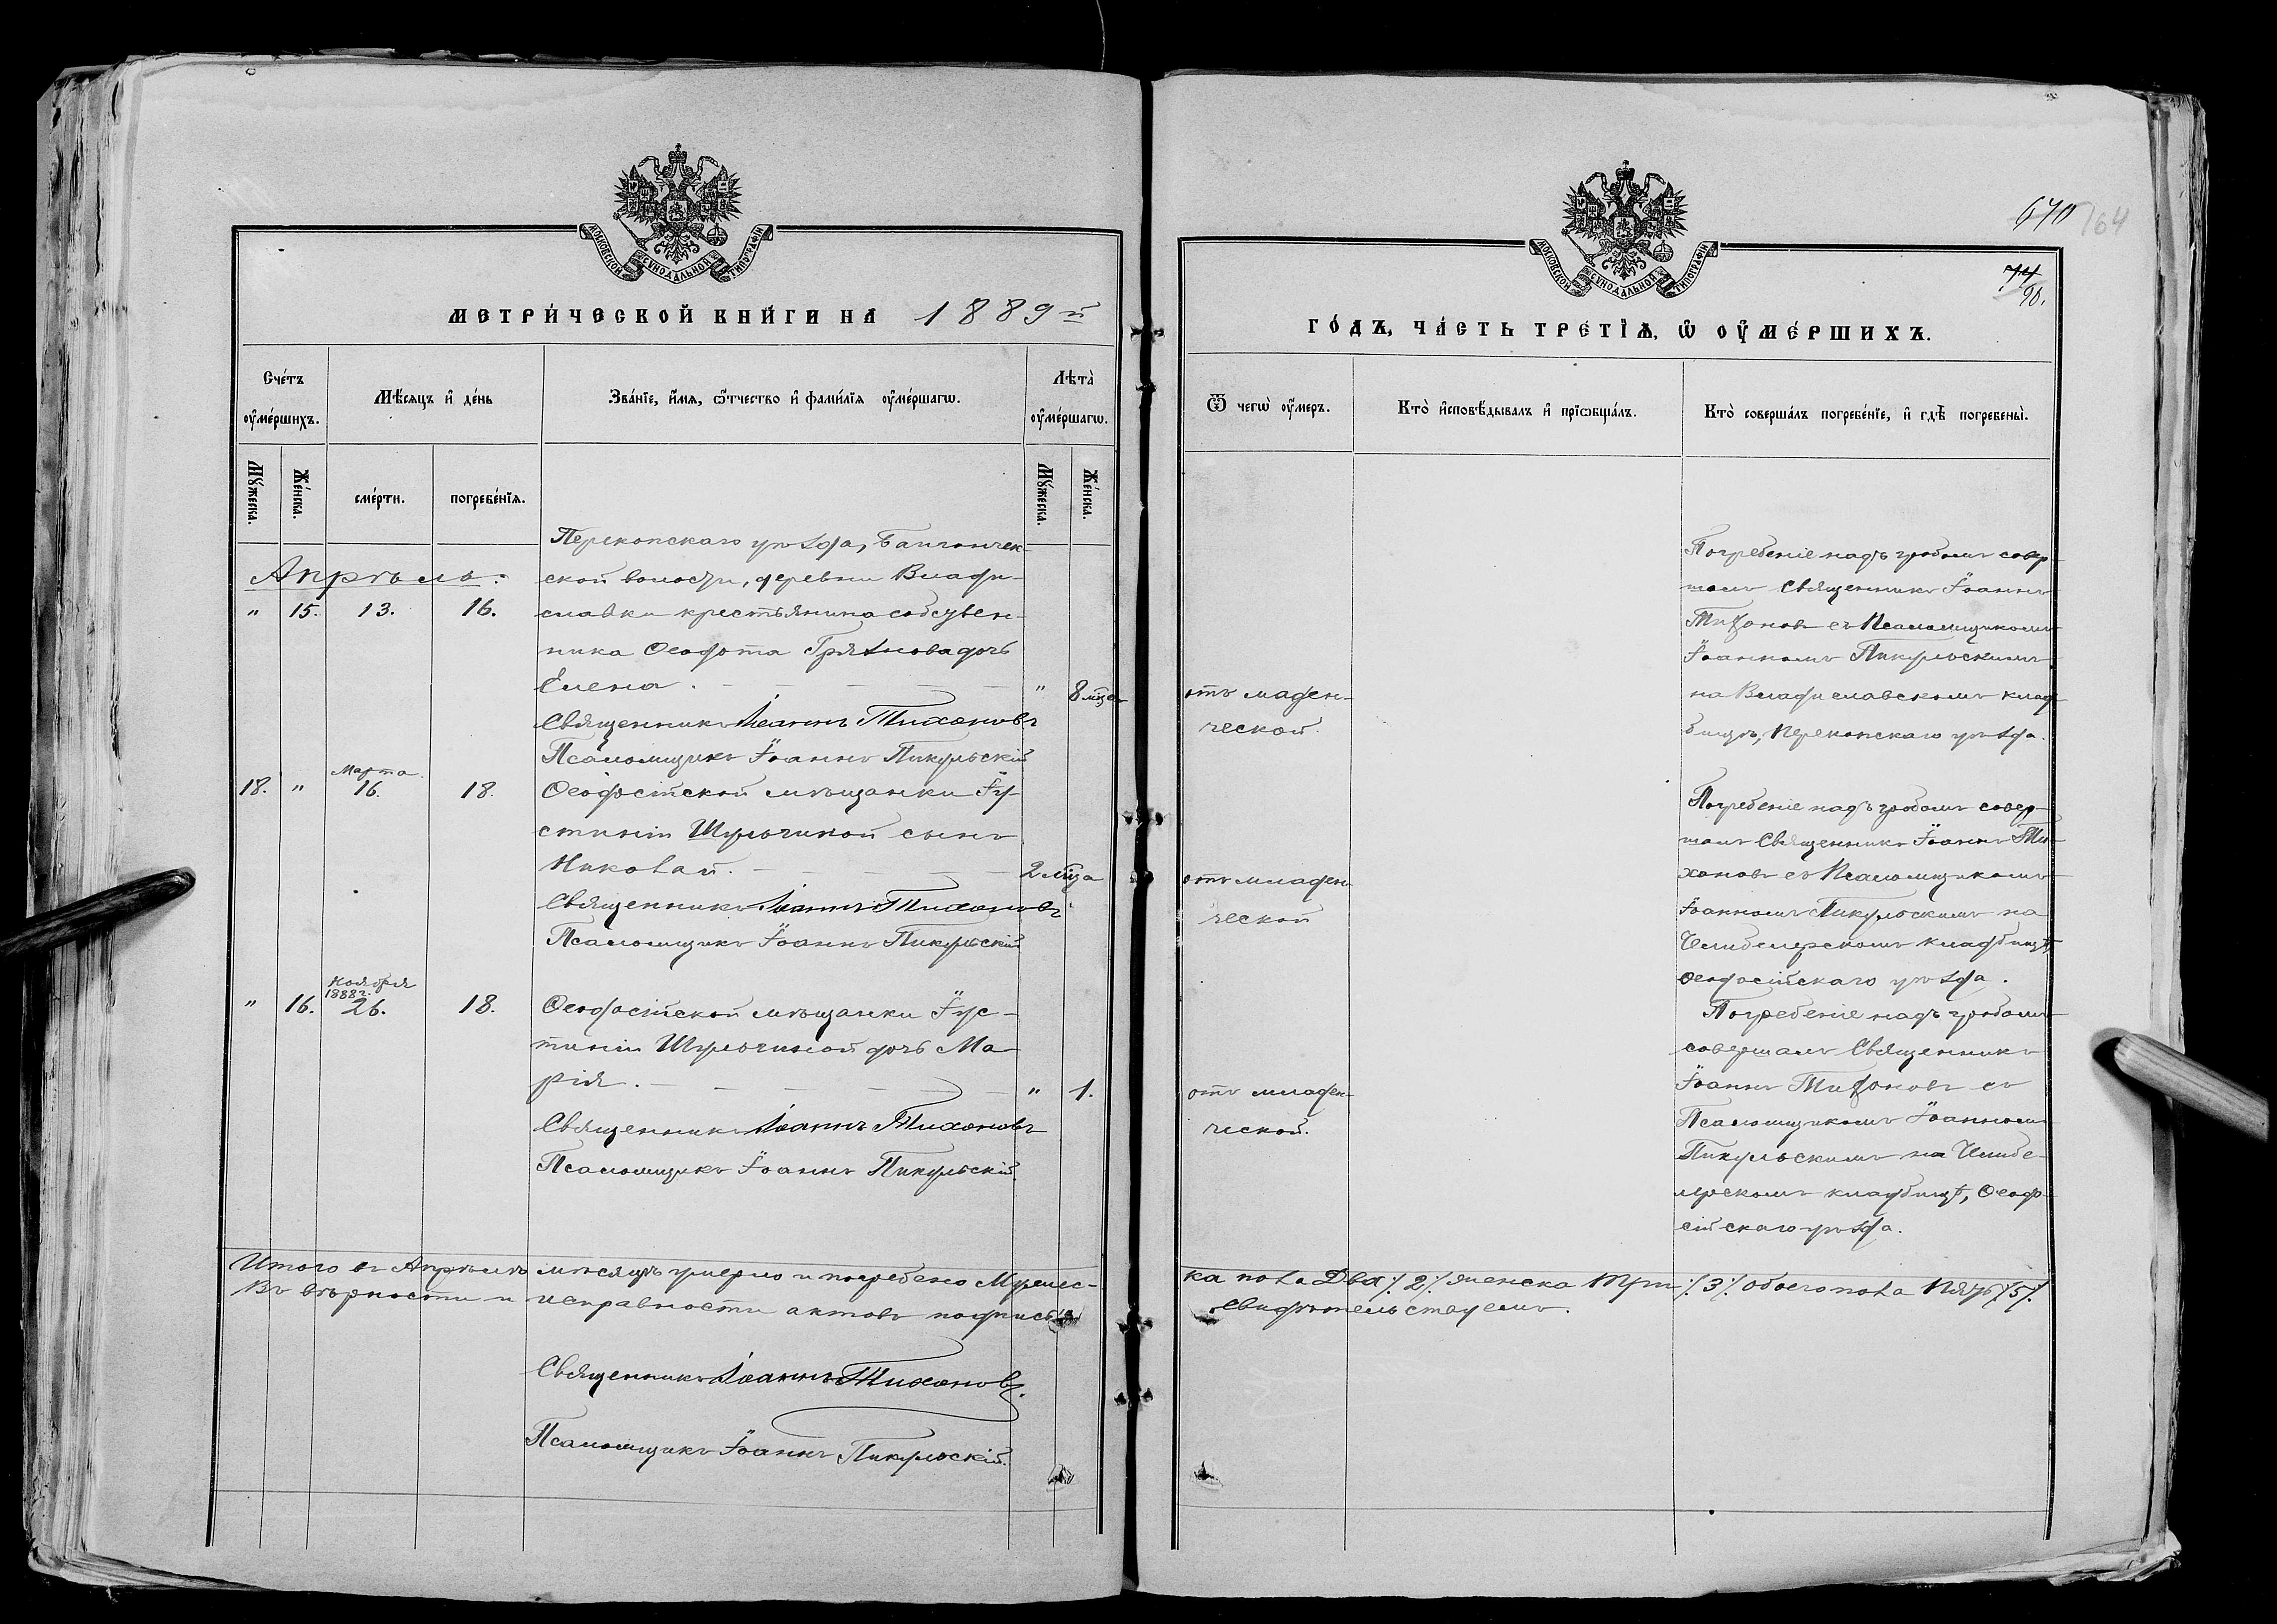 МОСКОВСКОЙ СѴНОДАЛЬНОЙ ТИПОГРАФІИ
МЕТРИ́ЧЕСКОЙ КНИ́ГИ НА 1889й
Сче́тъ оу҆ме́ршихъ.
Мѣ́сяцъ и҆ де́нь
Зва́нїе, и҆́мѧ, ѻ҆́тчество и҆ фами́лїѧ оу҆ме́ршагѡ.
Лѣта̀ оу҆ме́ршагѡ.
Мꙋ́жеска.
Же́нска.
сме́рти.
погребе́нїѧ.
Мꙋ́жеска.
Же́нска.
Апрѣль.
" 15. 13. 16.
Перекопскаго уѣзда,
ской волости, деревни Влади-
славки крестьянина собствен-
ника Ѳеодота дочь
Елена. " 8 мца
Священникъ Іоаннъ Тихоновъ
Псаломщикъ Іоаннъ Пикульскій
18. " Марта 16. 18.
Ѳеодосійской мѣщанки Іу-
стиніи Шульчиной сынъ
Николай. 2 мца
Священникъ Іоаннъ Тихоновъ
Псаломщикъ Іоаннъ Пикульскій
" 16. Ноября 1888 г. 26. 18.
Ѳеодосійской мѣщанки Іус-
тиніи Шульчиной дочь Ма-
рія. " 1.
Священникъ Іоаннъ Тихоновъ
Псаломщикъ Іоаннъ Пикульскій.
Итого въ Апрѣлѣ мѣсяцѣ умерло и погребено Мужес-
Въ вѣрности и исправности актовъ
Священникъ Іоаннъ Тихоновъ.
Псаломщикъ Іоаннъ Пикульскій.
МОСКОВСКОЙ СѴНОДАЛЬНОЙ ТИПОГРАФІИ
670 164
90.
ГО́ДЪ, ЧА́СТЬ ТРЕ́ТЇѦ, Ѡ҆ ОУ҆МЕ́РШИХЪ.
Ѿ чегѡ̀ оу҆́меръ.
Кто̀ и҆сповѣ́дывалъ и҆ прїѡбща́лъ.
Кто̀ соверша́лъ погребе́нїе, и҆ гдѣ̀ погребены̀.
отъ мaден-
ческой.
Погребеніе надъ гробомъ совер-
шалъ Священникъ Іоаннъ
Тихоновъ съ Псаломщикомъ
Іоанномъ Пикульскимъ
на Владиславскомъ клад-
бищѣ, Перекопскаго уѣзда.
отъ младен-
ческой
Погребеніе надъ гробомъ совер-
шалъ Священникъ Іоаннъ Ти-
хоновъ съ Псаломщикомъ
Іоанномъ Пикульскимъ на
кладбищѣ,
Ѳеодосійскаго уѣзда.
отъ младен-
ческой.
Погребеніе надъ гробомъ
совершалъ Священникъ
Іоаннъ Тихоновъ съ
Псаломщикомъ Іоанномъ
Пикульскимъ на
кладбищѣ, Ѳеодо-
сійскаго уѣзда.
ка пола Два ./. 2 ./. женска три ./. 3 ./. обоего пола Пять ./. 5 ./.
свидѣтельствуемъ.